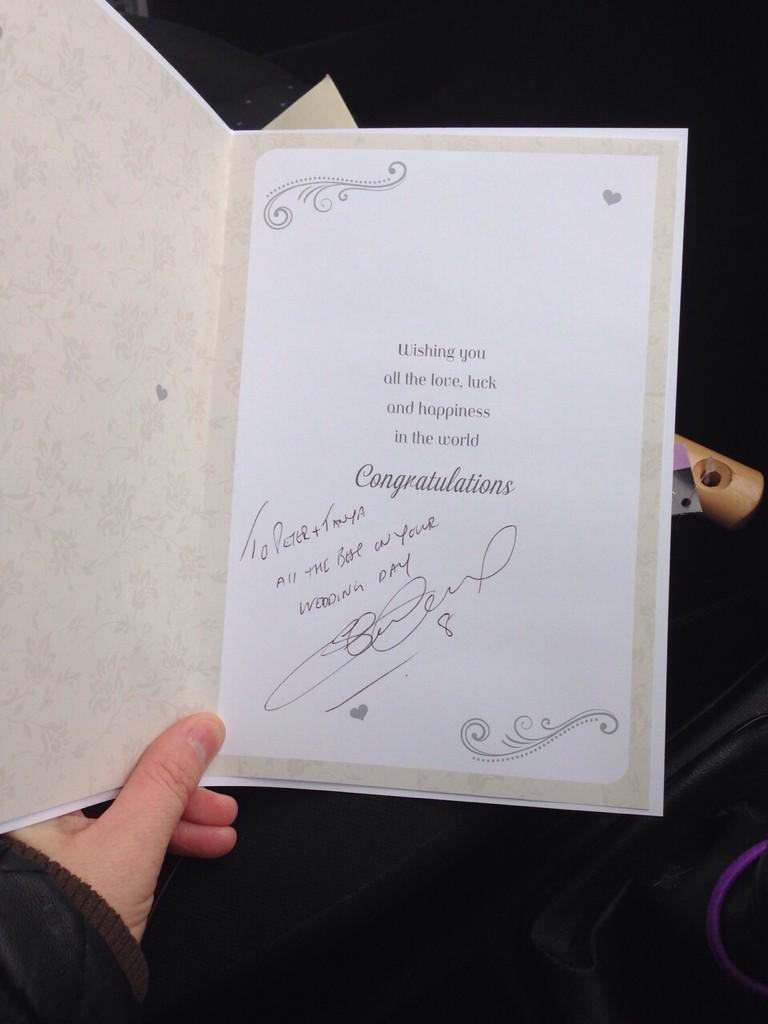 Wishing you
all the love, luck
and happiness
in the world
Congratulations
To Peter + Tanya
All the Best on your
Wedding Day
8